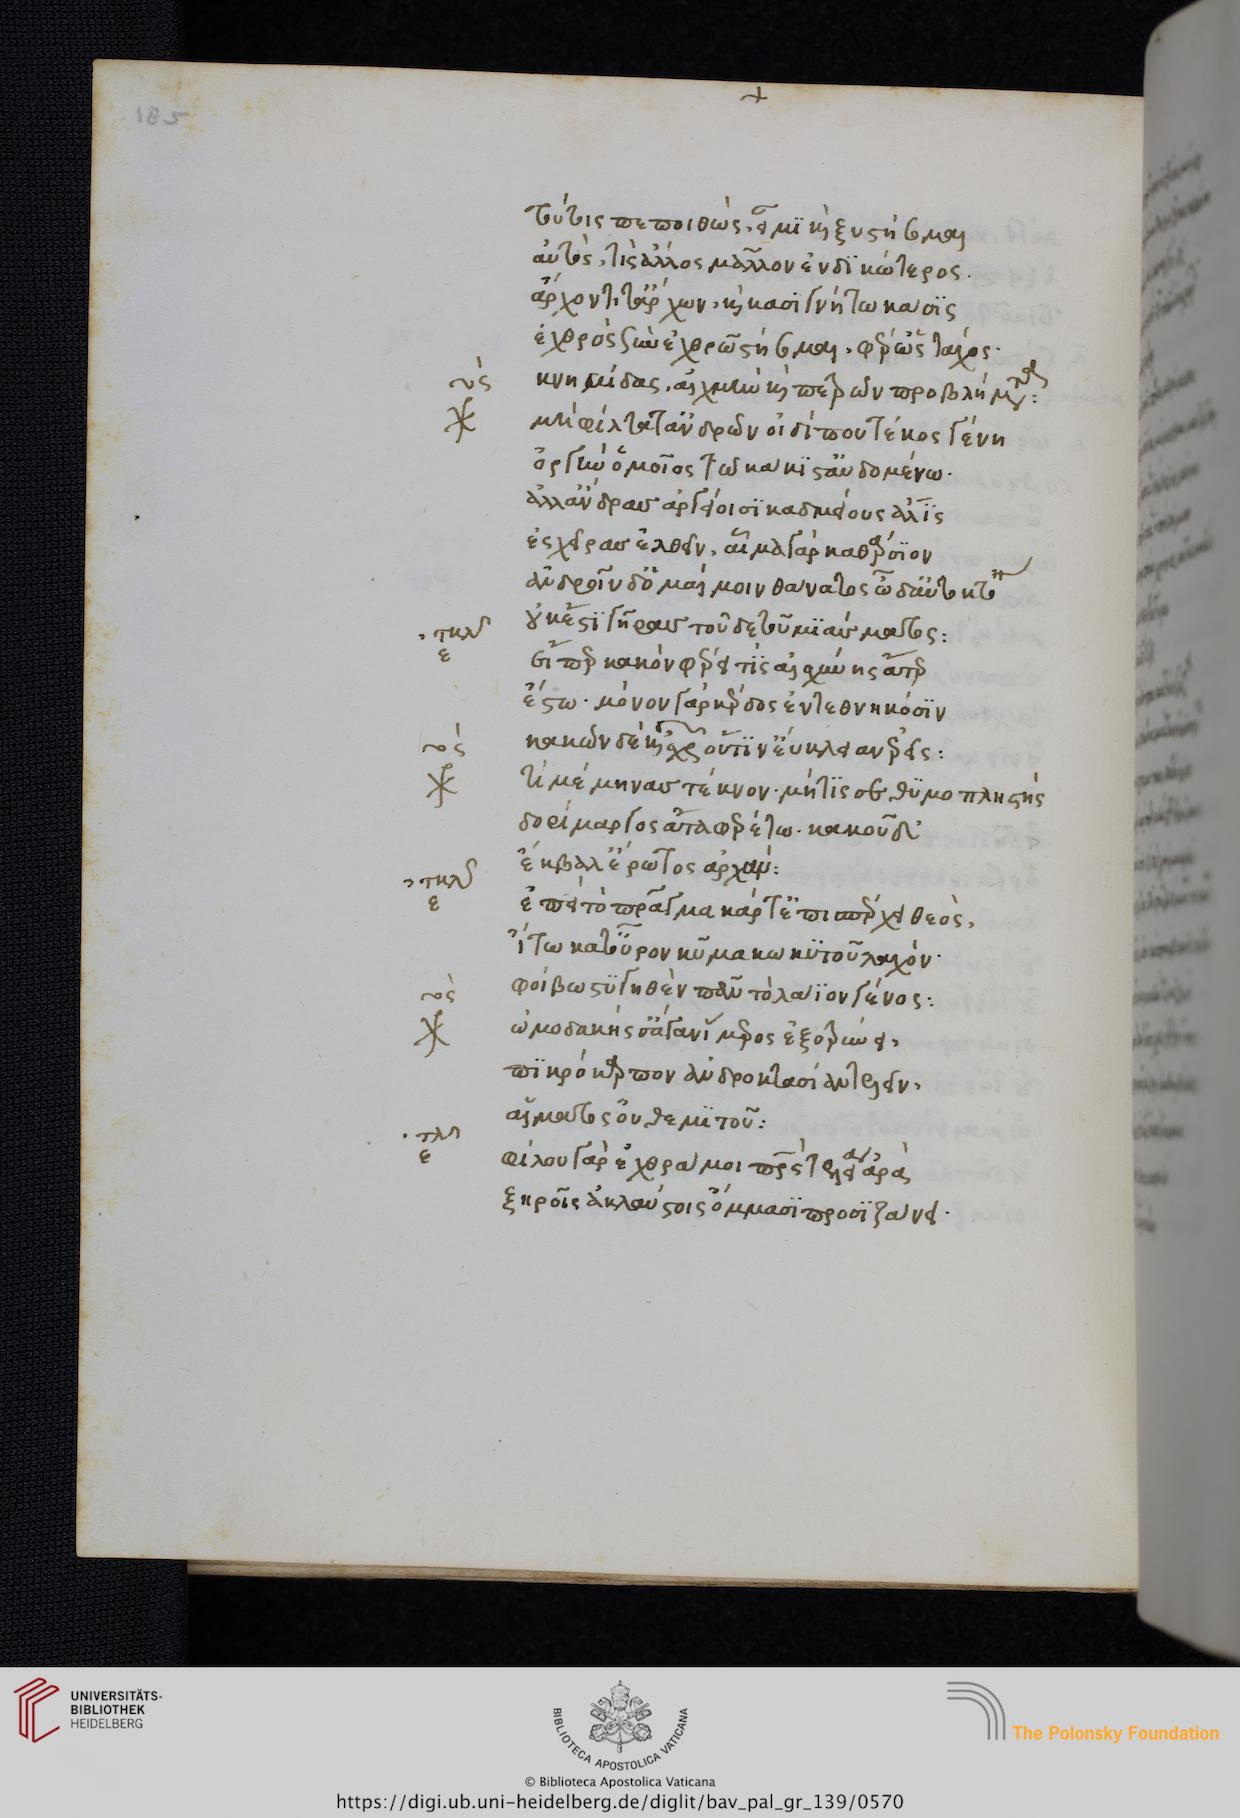 185
+
τούτοις πεποιθὼς, εἶμι κὴ ξυστήσομαι
αὐτὸς, τίς ἄλλος μᾶλλον ἐνδικώτερος.
ἄρχοντί τ' ἄρχων, κὴ κασιγνήτω κάσις
ἐχθρὸς ξὺν ἐχθρῶ στήσομαι. φέρ' ὡς τάχος.
κνημίδας, αἰχμὴν κὴ πετρῶν προβλήματα:
χο
μὴ φίλτατ' ἀνδρῶν οἰδίπου τέκος γένη
ὀργὴν ὁμοῖος τῶ κάκιστ' αὐδωμένω.
ἀλλ' ἄνδρας ἀργείοισι καδμείους ἅλις
ἐς χεῖρας ἐλθεῖν, αἷμα γὰρ καθάρσιον
ἀνδροῖν δ' ὁμαίμοιν θάνατος ὧδ' αὐτοκτόν
οὐκ ἔστι γῆρας τοῦδε τοῦ μιάσματος:
ετκλ
εἴπερ κακὸν φέρει τίς αἰσχύνης ἄτερ
ἔστω. μόνον γὰρ κέρδος ἐν τεθνηκόσιν
κακῶν δὲ κᾀσχρῶν οὔτιν' εὔκλειαν ἐρεῖς:
χο
τί μέμηνας τέκνον. μήτίς σε θυμοπληθής
δορίμαργος ἄτα φερέτω. κακοῦ δ'
ἔκβαλ' ἔρωτος ἀρχάν:
ετκλ
ἐπεὶ τὸ πρᾶγμα κάρτ' ἐπισπέρχει θεὸς,
ἴτω κατ' οὖρον κῦμα κωκυτοῦ λαχὸν.
φοίβω στυγηθὲν πᾶν τὸ λαΐου γένος:
χο
ὠμοδακής σ' ἄγαν ἵμερος ἐξοτρύνει,
πικρόκαρπον ἀνδροκτασίαν τελεῖν,
αἵματος οὐ θεμιτοῦ:
ετλ
φίλου γὰρ ἐχθρά μοι πατρὸς τελεῖ ἀρὰ
ξηροῖς ἀκλαύστοις ὄμμασι προσιζάνει.
UNIVERSITÄTS-
BIBLIOTHEK
HEIDELBERG
BIBLIOTECA APOSTOLICA VATICANA
The Polonsky Foundation
© Biblioteca Apostolica Vaticana
https://digi.ub.uni-heidelberg.de/diglit/bav_pal_gr_139/0570